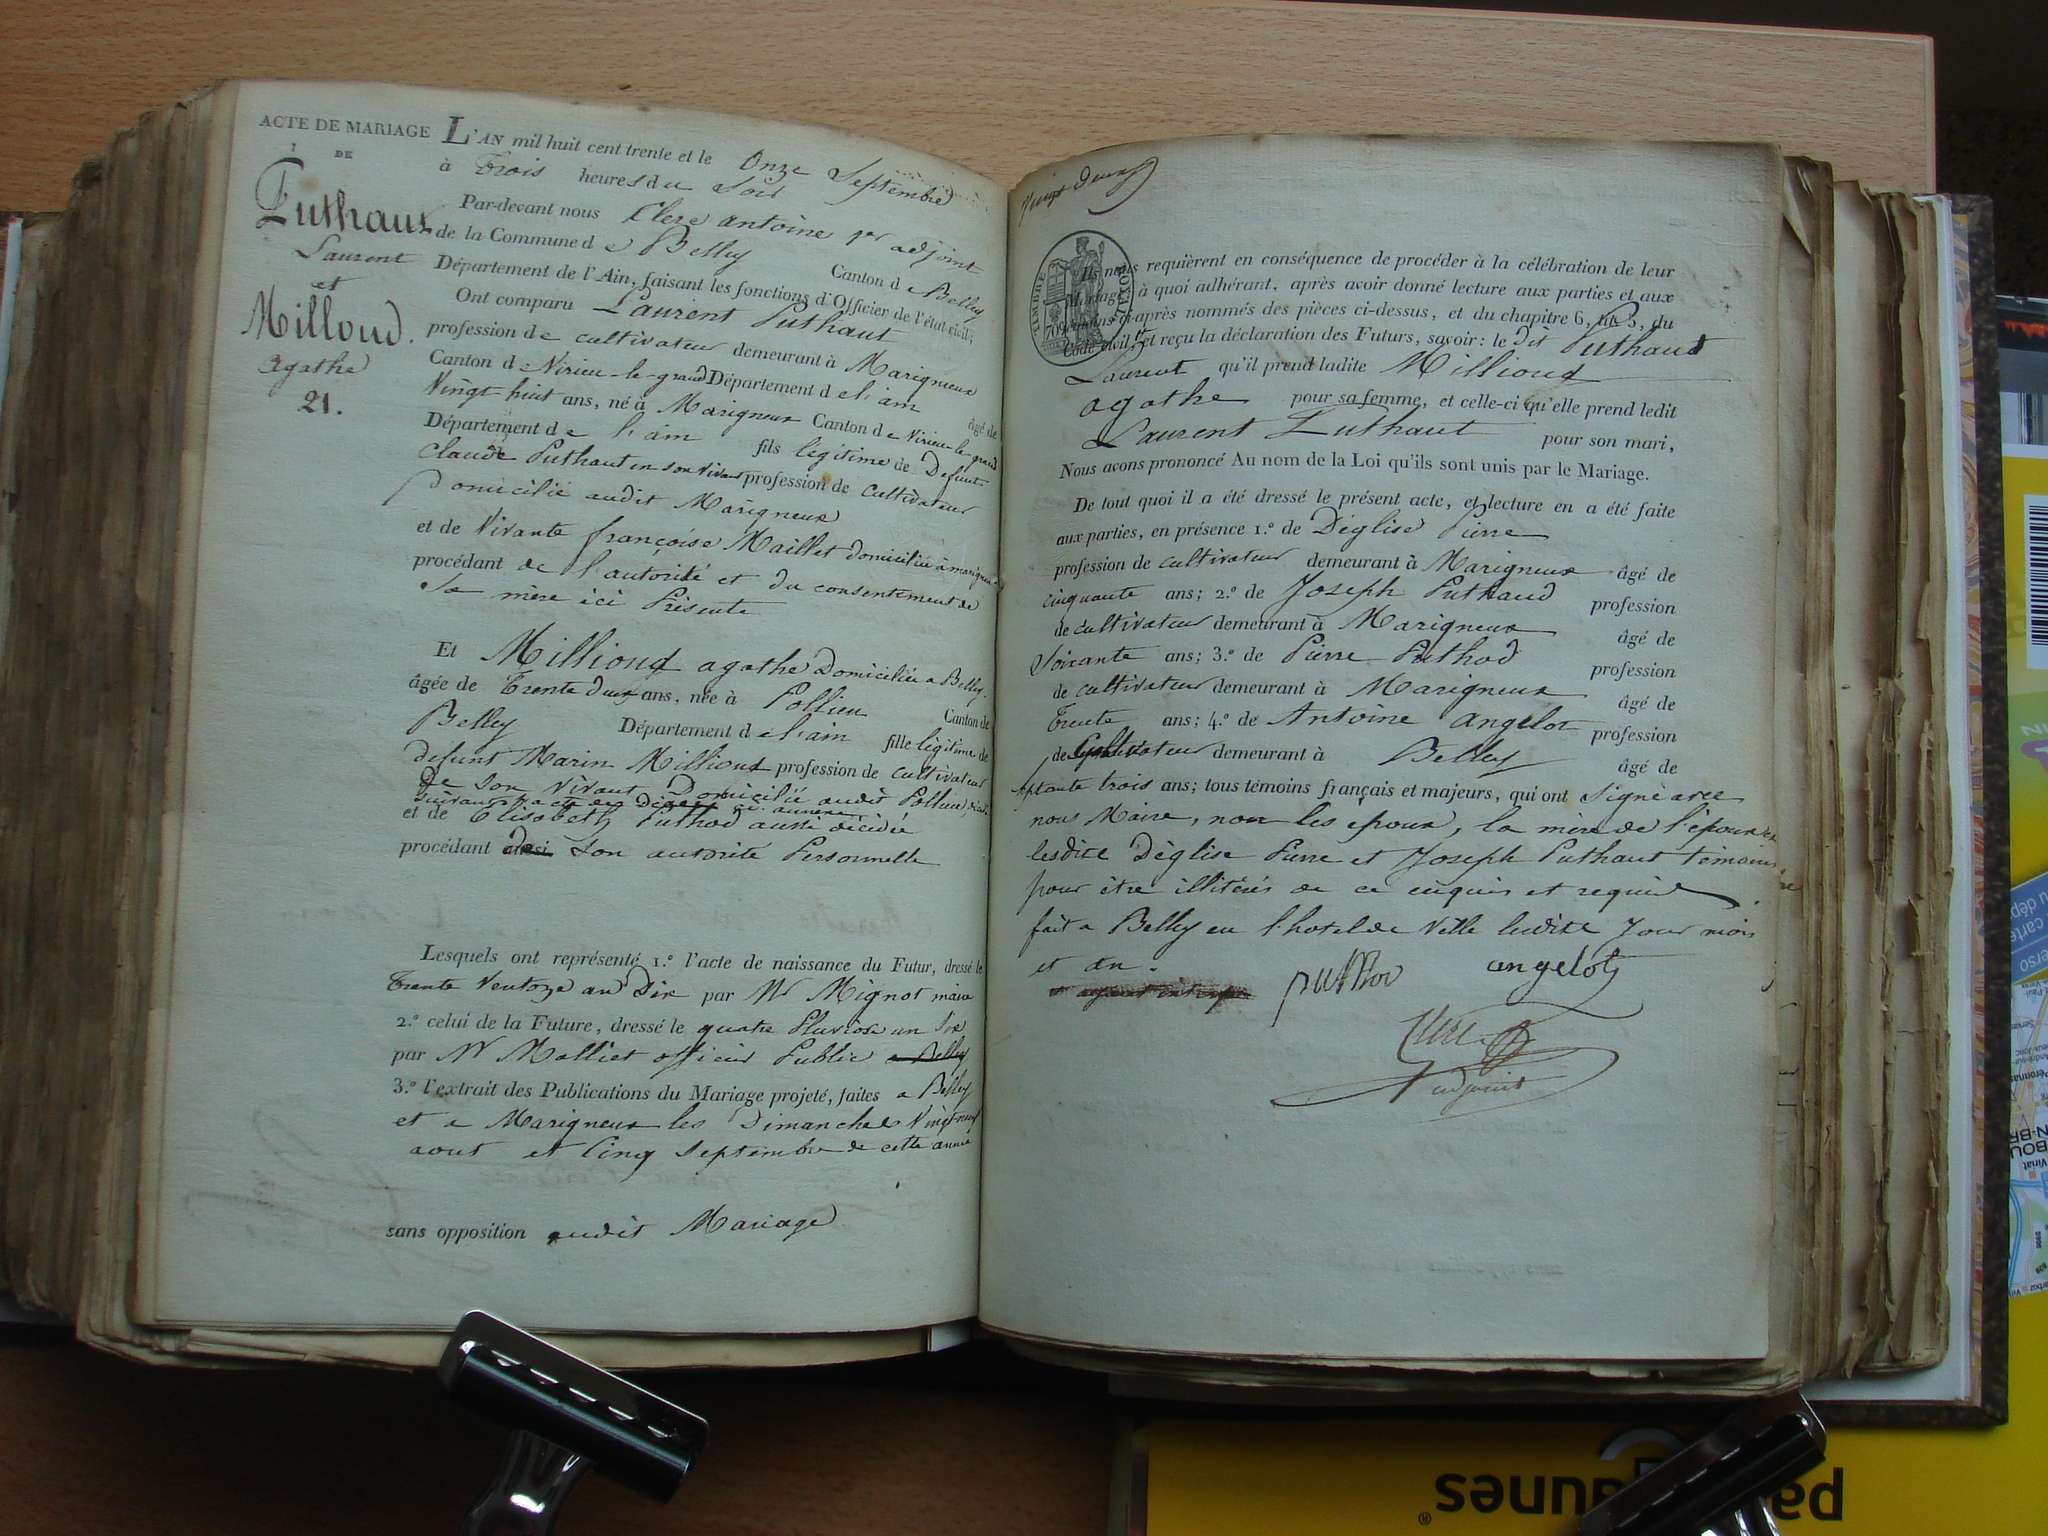 ACTE DE MARIAGE
DE
Puthaut
Laurent
et
Millioud.
Agathe
21.
L'AN mil huit cent trente et le Onze Septembre
à Trois heures du Soir
Par-devant nous Clerc antoine 1er adjoint
de la Commune de Belley Canton de Belley
Département de l'Ain, faisant les fonctions d'Officier de l'état civil;
Ont comparu Laurent Puthaut
profession de cultivateur demeurant à Marigneux
Canton de Virieu-le-grand Département de l'ain âgé de
Vingt huit ans, né à Marigneux Canton de Virieu-le-grand
Département de l'ain fils légitime de Defunt
Claude Puthaut en son vivant profession de cultivateur
Domicilié audit Marigneux
et de Vivante françoise Maillet domiciliée à marigneux
procédant de l'autorité et du consentement de
Sa mère ici Présente
Et Millioud agathe Domiciliée a Belley.
âgée de Trente deux ans, née à Pollieu Canton de
Belley Département de l'ain fille légitime de
defunt Marin Millioud profession de cultivateur
de son vivant Domicilié audit Pollieu, décédé
suivant l'acte de Décès ci annexé
et de Elisabeth Puthod aussi décédée
procédant de son autorité Personnelle
Lesquels ont représenté 1.º l'acte de naissance du Futur, dressé le
Trente Ventoze an Dix par Mr Mignot maire
2.º celui de la Future, dressé le quatre Pluviose an Six
par Mr Molliet officier Public a Belley
3.º l'extrait des Publications du Mariage projeté, faites a Belley
et a Marigneux les Dimanches Vingt neuf
aout et Cinq Septembre de cette année
sans opposition audit Mariage
Vingt deux
TIMBRE ROYAL
70
Ils nous requièrent en conséquence de procéder à la célébration de leur
Mariage, à quoi adhérant, après avoir donné lecture aux parties et aux
témoins ci-après nommés des pièces ci-dessus, et du chapitre 6, tit. 5, du
Code civil, et reçu la déclaration des Futurs, savoir: le dit Puthaud
Laurent qu'il prend ladite Millioud
agathe pour sa femme, et celle-ci qu'elle prend ledit
Laurent Puthaut pour son mari,
Nous avons prononcé Au nom de la Loi qu'ils sont unis par le Mariage.
De tout quoi il a été dressé le présent acte, et lecture en a été faite
aux parties, en présence 1.º de Déglise Pierre
profession de cultivateur demeurant à Marigneux âgé de
cinquante ans; 2.º de Joseph Puthaud profession
de cultivateur demeurant à Marigneux âgé de
Soixante ans; 3.º de Pierre Puthod profession
de cultivateur demeurant à Marigneux âgé de
Trente ans; 4.º de Antoine angelot profession
de demeurant à Belley âgé de
septante trois ans; tous témoins français et majeurs, qui ont Signé avec
nous Maire, non les epoux, la mère de l'epoux et
lesdits Déglise Pierre et Joseph Puthaut témoins
pour être illitérés de ce enquis et requis
fait a Belley en l'hotel de Ville lesdits Jour mois
et an.
puthod angelot
Clerc
adjoint
pa aunes